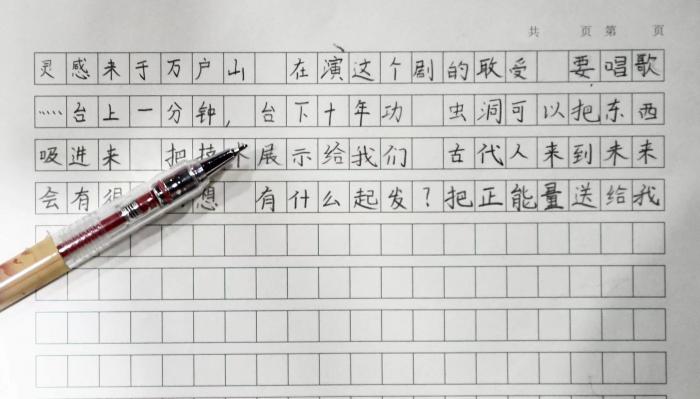 共 页 第 页
灵感来于万户山 在演这个剧的感受 要唱歌
……台上一分钟，台下十年功 虫洞可以把东西
吸进来 把技术展示给我们 古代人来到未来
会有很 想 有什么起发？把正能量送给我